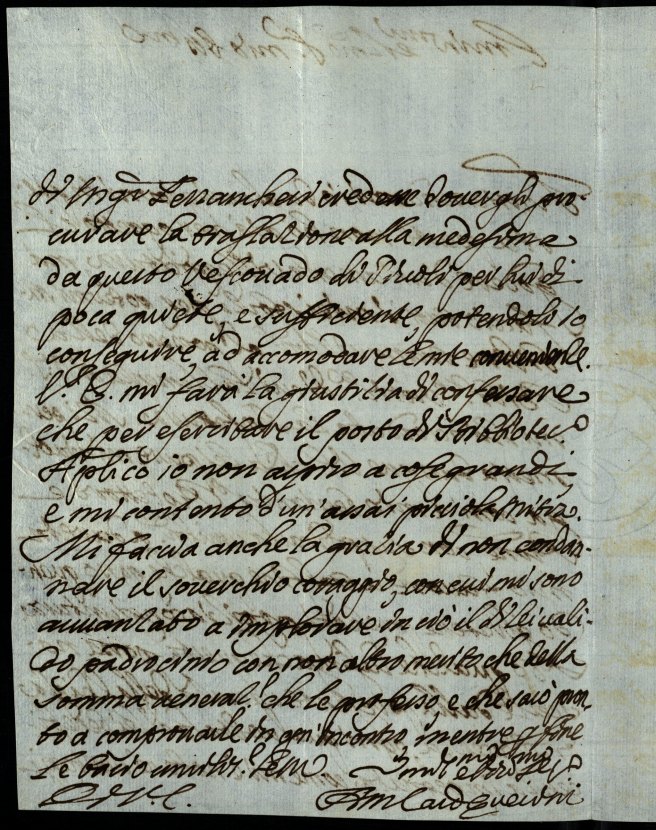 di Mgr Terranchesi credere dovergli pro-
curare la traslazione alla medesima
da questo Vescovado di Tivoli per lui di
poca quiete, e sufficiente, potendolo io
conseguire, ad accomodare convenientem.
V. E. mi farà la giustitia di confessare
che per esercitare il posto di Bibliotec.o
Aplico io non aspiro a cose grandi,
e mi contento d'un'assai picciola
Mi faccia anche la gracia di non condan-
nare il soverchio coraggio, con cui mi sono
avvantato a implorare in ciò il di lei vali-
do padrocinio con non altro merito che della
somma veneraz.e che le professo, e che sarò pron-
to a comprovarle in ogn'incontro, mentre p fine
le bacio umilm.te le m.
Di V. E.